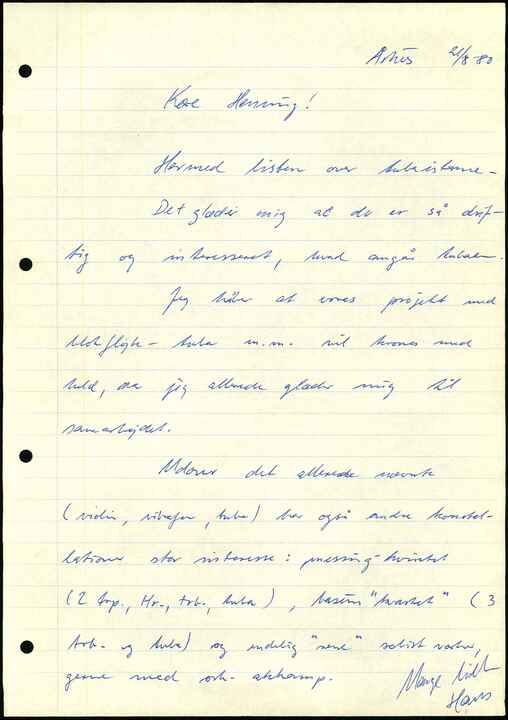 Århus 21/8-80
Kære Henning!
Hermed listen over tubaisterne -
Det glæder mig at du er så drif-
tig og interesseret, hvad angår tubaen.
Jeg håber at vores projekt med
blokfløjte - tuba m.m. vil krones med
held, da jeg allerede glæder mig til
samarbejdet.
Udover det allerede nævnte
(violin, vibrafon, tuba) har også andre konstel-
lationer stor interesse: messing-kvintet
(2 trp., Hr., trb., tuba), basun "kvartet" (3
trb. og tuba) og endelig "rene" solist værker,
gerne med ork. akkomp.
Mange hilsn
Hans